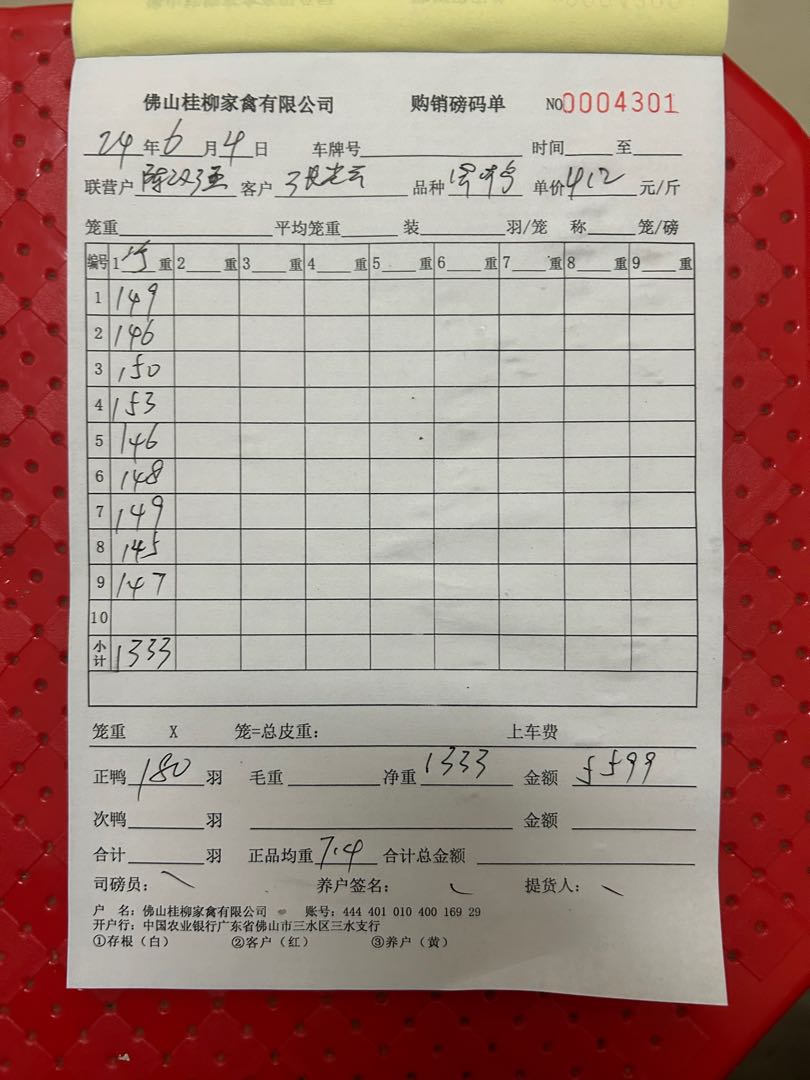 佛山桂柳家禽有限公司 购销磅码单 NO0004301
24年6月4日 车牌号 时间 至
联营户 客户 品种 单价 4.2 元/斤
笼重 平均笼重 装 羽/笼 称 笼/磅
编号 1 重 2 重 3 重 4 重 5 重 6 重 7 重 8 重 9 重
1 149
2 146
3 150
4 153
5 146
6 148
7 149
8 145
9 147
10
小计 1333
笼重 X 笼=总皮重: 上车费
正鸭 180 羽 毛重 净重 1333 金额 5599
次鸭 羽 金额
合计 羽 正品均重 7.4 合计总金额
司磅员: 养户签名: 提货人:
户 名: 佛山桂柳家禽有限公司 账号: 444 401 010 400 169 29
开户行: 中国农业银行广东省佛山市三水区三水支行
①存根(白) ②客户(红) ③养户(黄)